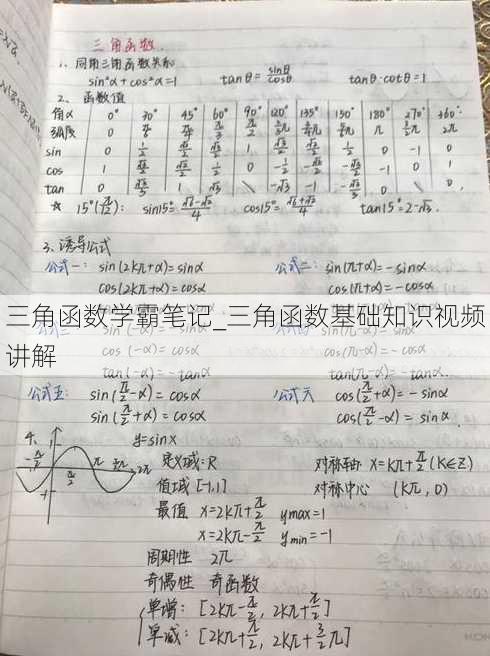 三角函数.
1、同角三角函数关系
sin²α+cos²α=1 tanθ=sinθ/cosθ tanθ·cotθ=1
2、函数值
角α 0° 30° 45° 60° 90° 120° 135° 150° 180° 270° 360°
弧度 0 π/6 π/4 π/3 π/2 2/3π 3/4π π π 3/2π 2π
sin 0 1/2 √2/2 √3/2 1 √3/2 √2/2 1/2 0 -1 0
cos 1 √3/2 √2/2 1/2 0 -1/2 -√2/2 -√3/2 -1 0 1
tan 0 √3/3 1 √3 \ -√3 -1 -√3/3 0 \ 0
☆ 15°(π/12): sin15°=√6-√2/4 cos15°=√6+√2/4 tan15°=2-√3.
3、诱导公式
公式一: sin(2kπ+α)=sinα 公式二: sin(π+α)=-sinα
cos(2kπ+α)=cosα cos(π+α)=-cosα
三角函数学霸笔记_三角函数基础知识视频
讲解
cos(-α)=cosα cos(π-α)=-cosα
tan(-α)=-tanα tan(π-α)=-tanα
公式五: sin(π/2-α)=cosα 公式六 cos(π/2+α)=-sinα
sin(π/2+α)=cosα cos(π/2-α)=sinα
4、 y=sinx
定义域:R 对称轴 x=kπ+π/2(k∈Z)
值域[-1,1] 对称中心 (kπ,0)
最值 x=2kπ+π/2 ymax=1
x=2kπ-π/2 ymin=-1
周期性 2π
奇偶性 奇函数
单增: [2kπ-π/2, 2kπ+π/2]
单减: [2kπ+π/2, 2kπ+3/2π]